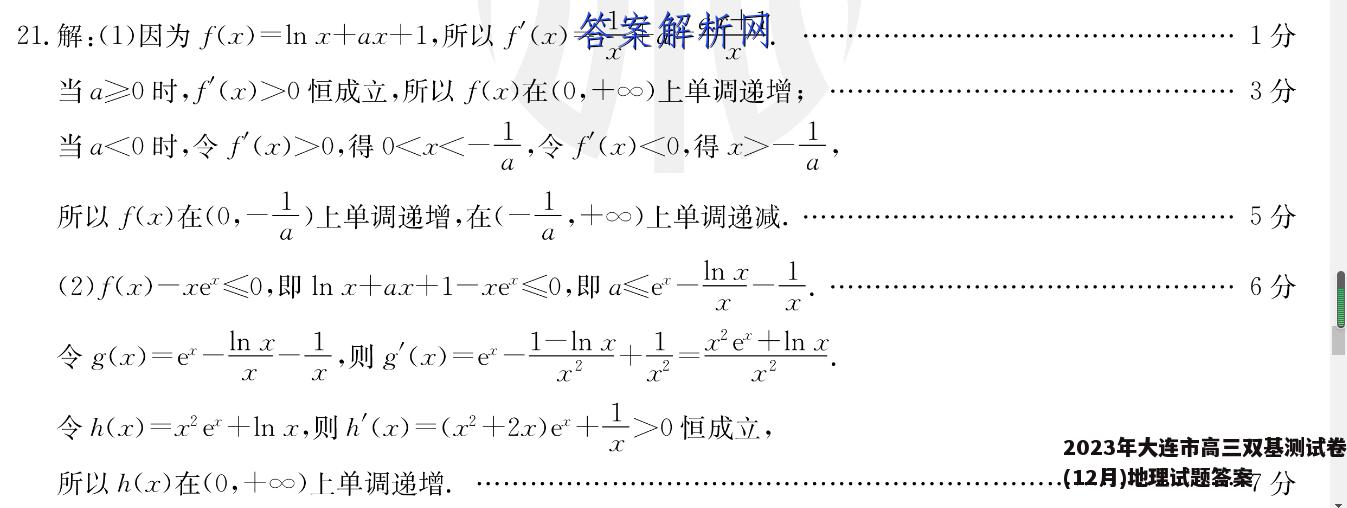 21. 解:(1)因为 f(x)=ln x+ax+1,所以 f′(x)= 1/x . …… 1 分
答案解析网
当 a≥0 时,f′(x)>0 恒成立,所以 f(x)在(0,+∞)上单调递增; …… 3 分
当 a<0 时,令 f′(x)>0,得 0<x<-1/a,令 f′(x)<0,得 x>-1/a,
所以 f(x)在(0,-1/a)上单调递增,在(-1/a,+∞)上单调递减. …… 5 分
(2)f(x)-xeˣ≤0,即 ln x+ax+1-xeˣ≤0,即 a≤eˣ-ln x/x-1/x. …… 6 分
令 g(x)=eˣ-ln x/x-1/x,则 g′(x)=eˣ-(1-ln x)/x²+1/x²=(x²eˣ+ln x)/x².
令 h(x)=x²eˣ+ln x,则 h′(x)=(x²+2x)eˣ+1/x>0 恒成立,
所以 h(x)在(0,+∞)上单调递增. …… 7 分
2023年大连市高三双基测试卷
(12月)地理试题答案